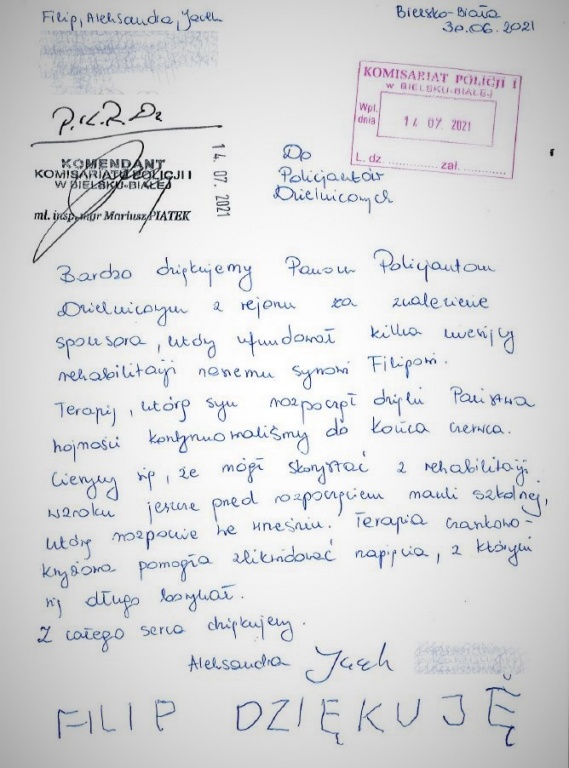 Filip, Aleksandra, Jach
Bielsko-Biała
30.06.2021
P.K.R.Dz
KOMISARIAT POLICJI I
W BIELSKU-BIAŁEJ
Wpł.
dnia
14 07. 2021
L. dz. ............... zał. ...............
KOMENDANT
KOMISARIATU POLICJI I
W BIELSKU-BIAŁEJ
mł. insp. mgr Mariusz PIATEK
14. 07. 2021
Do
Policjantów
Dzielnicowych
Bardzo dziękujemy Panom Policjantom
Dzielnicowym z rejonu za znalezienie
sponsora, który ufundował kilka miesięcy
rehabilitacji naszemu synowi Filipowi.
Terapię, którą syn rozpoczął dzięki Państwa
hojności kontynuowaliśmy do końca czerwca.
Cieszymy się, że mógł skorzystać z rehabilitacji
wzroku jeszcze przed rozpoczęciem nauki szkolnej,
którą rozpocznie we wrześniu. Terapia czaszkowo-
krzyżowa pomogła zlikwidować napięcia, z którymi
się długo borykał.
Z całego serca dziękujemy.
Aleksandra Jach
FILIP DZIĘKUJĘ